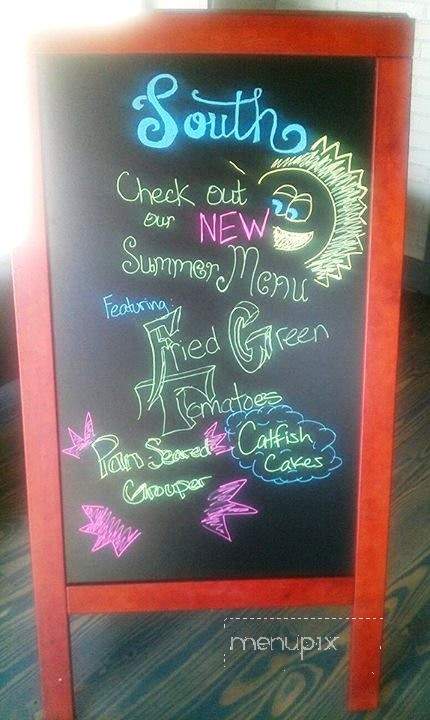 South
Check out
our NEW
Summer Menu
Featuring:
Fried Green
Tomatoes
Pan Seared
Grouper
Catfish
Cakes
menupix